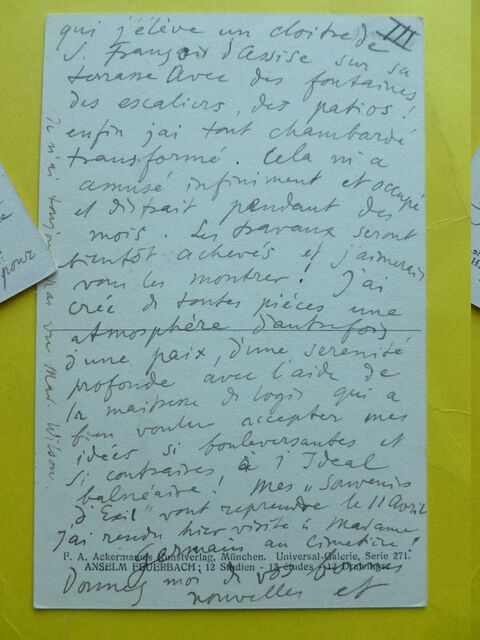 III
qui j'élève un cloître de
S. François d'Assise sur sa
terrasse avec des fontaines
des escaliers, des patios!
enfin j'ai tout chambardé
transformé. Cela m'a
amusé infiniment et occupé
et distrait pendant des
mois. Les travaux seront
bientôt achevés et j'aimerais
vous les montrer! J'ai
créé de toutes pièces une
atmosphère d'autrefois
d'une paix, d'une serenité
profonde avec l'aide de
la maitresse de logis qui a
bien voulu accepter mes
idées si bouleversantes et
si contraires à l'Ideal
balnéaire! Mes "Souvenirs
d'Exil" vont reprendre le 11 Avril
J'ai rendu hier visite à Madame
Germain au cimetière!
F. A. Ackermanns Kunstverlag, München. Universal-Galerie, Serie 271.
ANSELM FEUERBACH: 12 Studien - 12 études - 12 Drawings
Donnez moi de vos bonnes
nouvelles et
Je n'ai toujours vu Mad. Wilson.
pour